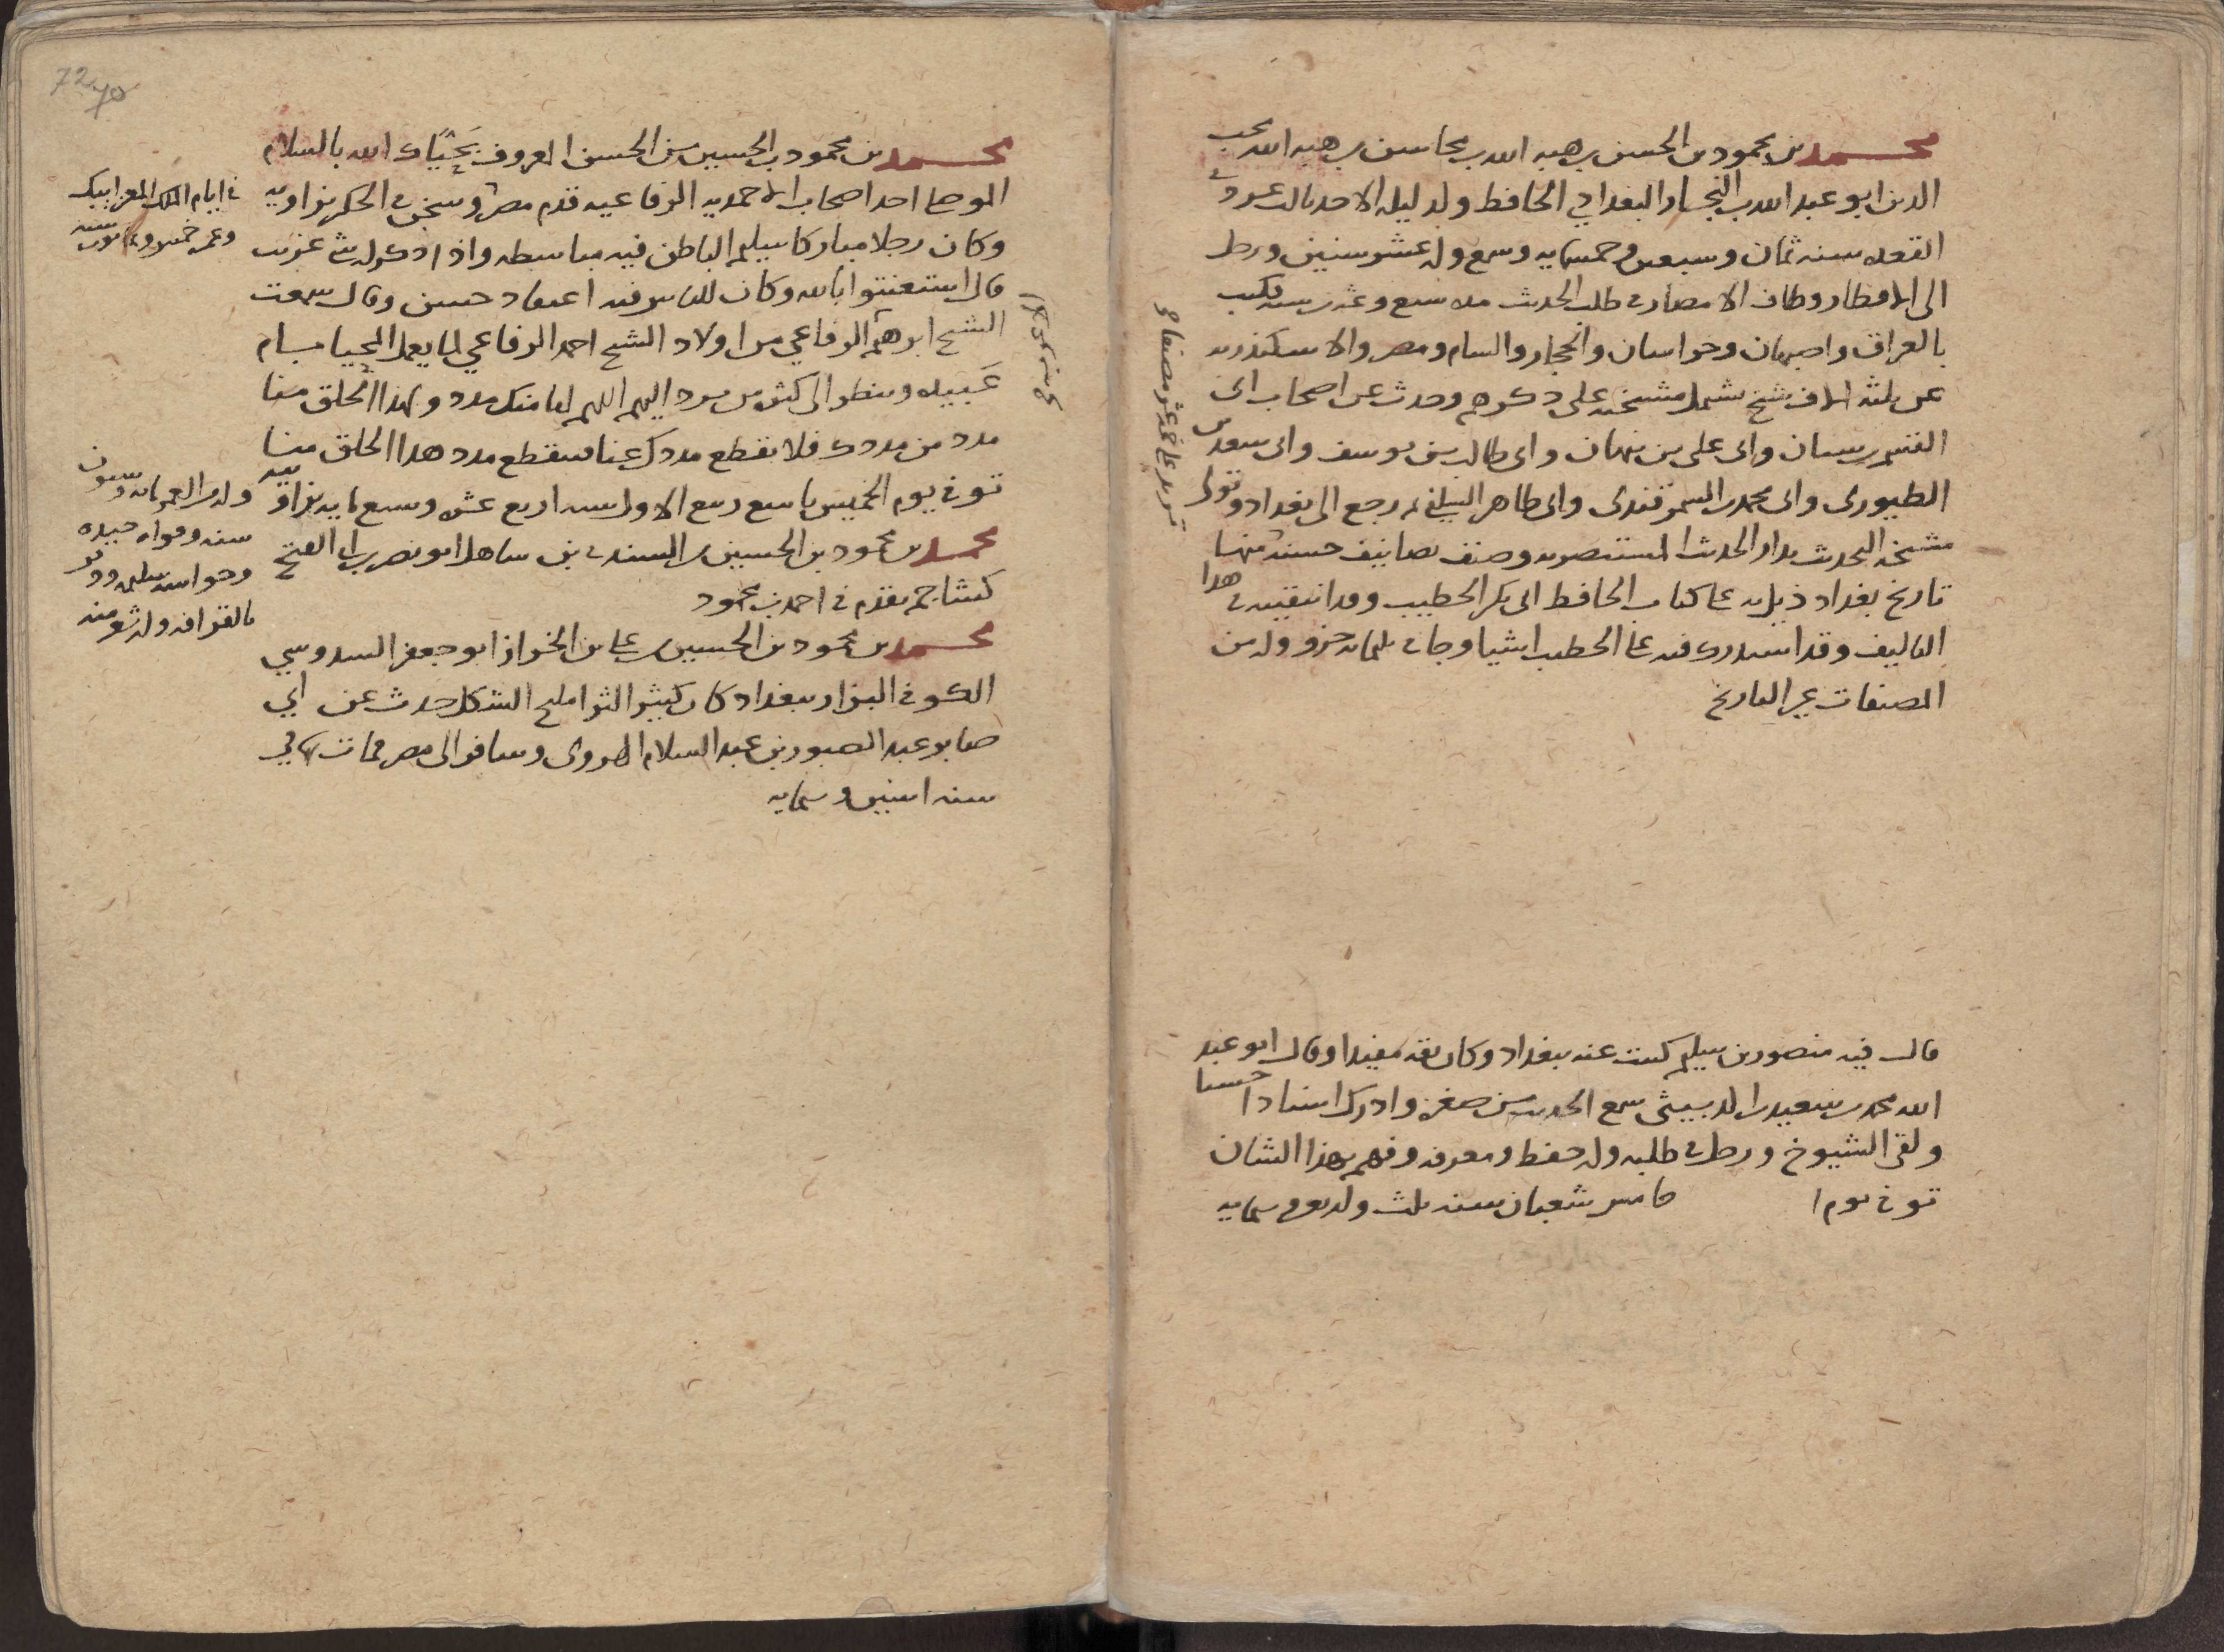 محمد بن محمود بن الحسن بن هبه الله بن محاسن بن هبه الله محب
الدين ابو عبد الله بن النجار البغدادي الحافظ ولد ليله الاحد ثالث عشر ذي
القعده سنه ثمان وسبعين وخمسمايه وسمع وله عشر سنين ورحل
الى الاقطار وطاف الامصار في طلب الحديث مده سبع وعشرين سنه فكتب
بالعراق واصبهان وخراسان والحجاز والشام ومصر والاسكندريه
عن ثلثه الاف شيخ تشمل مشيخته على ذكرهم وحدث عن اصحاب ابي
القسم بن بيان وابي علي بن نبهان وابي طالب بن يوسف وابي سعد بن
الطيوري وابي محمد بن السمرقندي وابي طاهر السلفي ثم رجع الى بغداد وتولى
مشيخه التحديث بدار الحديث المستنصريه وصنف تصانيف حسنه منها
تاريخ بغداد ذيل به على كتاب الحافظ ابي بكر الخطيب وقد انتقيته في هذا
التاليف وقد استدرك فيه على الخطيب اشيا وجا في ثلثمايه جزو وله من
المصنفات غير التاريخ
تزيد على خمسة عشر مصنفا
قال فيه منصور بن سليم كتبت عنه ببغداد وكان ثقه مفيدا وقال ابو عبد
الله محمد بن سعيد بن الدبيثي سمع الحديث من صغره وادرك اسنادا حسنا
ولقى الشيوخ ورحل في طلبه وله حفظ ومعرفه وفهم بهذا الشان
توفي يوم ا خامس شعبان سنه ثلث واربعين وستمايه
محمد بن محمود بن الحسين بن الحسن المعروف بحياك الله بالسلام
الموصلي احد اصحاب الاحمديه الرفاعيه قدم مصر وسكن في الحكر بزاويه
في ايام الملك المعز ايبك
وعمره خمس وثمانون سنه
وكان رجلا مباركا سليم الباطن فيه مباسطه واذا ذكر له شي غريب
قال استعنتوا بالله وكان للناس فيه اعتقاد حسن وقال سمعت
الشيخ ابرهيم الرفاعي من اولاد الشيخ احمد الرفاعي لما يعمل المحيا بسام
عبيده وينظر الى كثره من يرد اليهم اللهم لنا منك مدد ولهذا الخلق منا
مدد من مددك فلا تقطع مددك عنا فينقطع مدد هذا الخلق منا
توفي يوم الخميس تاسع ربيع الاول سنه اربع عشره وسبعمايه بزاويته
وله من العمر مايه وستون
سنه وقواه جيده
وحواسه سليمه ودفن
بالقرافه وله شعر منه
محمد بن محمود بن الحسين بن السندي بن شاهك ابو نصر بن ابي الفتح
كشاجم تقدم في احمد بن محمود
محمد بن محمود بن الحسين بن علي بن الخراز ابو جعفر السدوسي
الكوفي البزاز ببغداد كان كبير الثرا مليح الشكل حدث عن ابي
صابر عبد الصبور بن عبد السلام الهروي وسافر الى مصر فمات بها في
سنه اثنين وستمايه
72
70